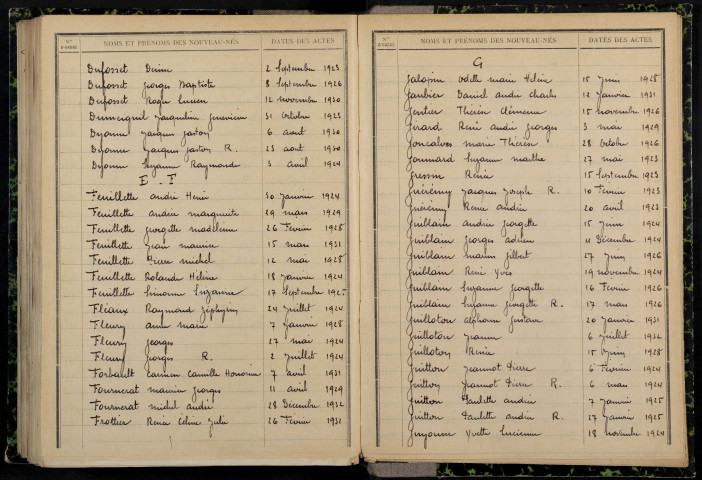 N° D'ORDRE NOMS ET PRÉNOMS DES NOUVEAU-NÉS DATES DES ACTES
Dufosset Denise 2 Septembre 1923
Dufosset Georges Baptiste 8 Septembre 1926
Dufosset Roger Lucien 12 novembre 1930
Jacqueline Genevieve 31 Octobre 1923
Dyonne Jacques Gaston 6 aout 1930
Dyonne Jacques Gaston R. 23 aout 1930
Dyonne Suzanne Raymonde 3 avril 1924
E - F
Feuillette andré Henri 30 Janvier 1924
Feuillette marguerite 29 mars 1929
Feuillette Georgette madeleine 26 Fevrier 1928
Feuillette Jean maurice 15 mars 1931
Feuillette Pierre michel 12 mai 1928
Feuillette Rolande Hélène 18 Janvier 1924
Feuillette Simonne Suzanne 17 Septembre 1925
Fléaux Raymond Zéphyrin 24 Juillet 1924
Fleury anne marie 7 Janvier 1928
Fleury Georges 27 mai 1924
Fleury Georges R. 2 Juillet 1924
Forbault Carmen Camille Honorine 7 avril 1931
Fournerat maurice Georges 11 avril 1929
Fournerat michel andré 28 Décembre 1932
Frottier Renée Céline Julie 26 Fevrier 1931
N° D'ORDRE NOMS ET PRÉNOMS DES NOUVEAU-NÉS DATES DES ACTES
G
Galopin Odette marie Hélène 15 Juin 1928
Gaubier Daniel andré Charles 12 Janvier 1931
Gentier Thérèse Clémence 15 novembre 1926
Gérard René andré Georges 3 mai 1929
Goncalves marie Thérèse 28 Octobre 1926
Gounnard Suzanne marthe 27 mai 1923
Gressin Renée 15 Septembre 1923
Guérémy Jacques Joseph R. 10 Fevrier 1923
Guérémy Renée andrée 20 avril 1923
Guiblain andrée Georgette 15 Juin 1924
Guiblain Georges adrien 11 Décembre 1924
Guiblain Gilbert 27 Juin 1926
Guiblain René Yves 19 novembre 1924
Guiblain Suzanne Georgette 16 Fevrier 1926
Guiblain Suzanne Georgette R. 17 mars 1926
Guilloton alphonse Gustave 20 Janvier 1931
Guilloton Jeanne 6 Juillet 1932
Guilloton Renée 15 Juin 1928
Guitton Jeannot Pierre 6 Fevrier 1924
Guitton Jeannot Pierre R. 6 mars 1924
Guitton Paulette andrée 7 Janvier 1925
Guitton Paulette andrée R. 27 Janvier 1925
Guyonne Yvette Lucienne 18 novembre 1924